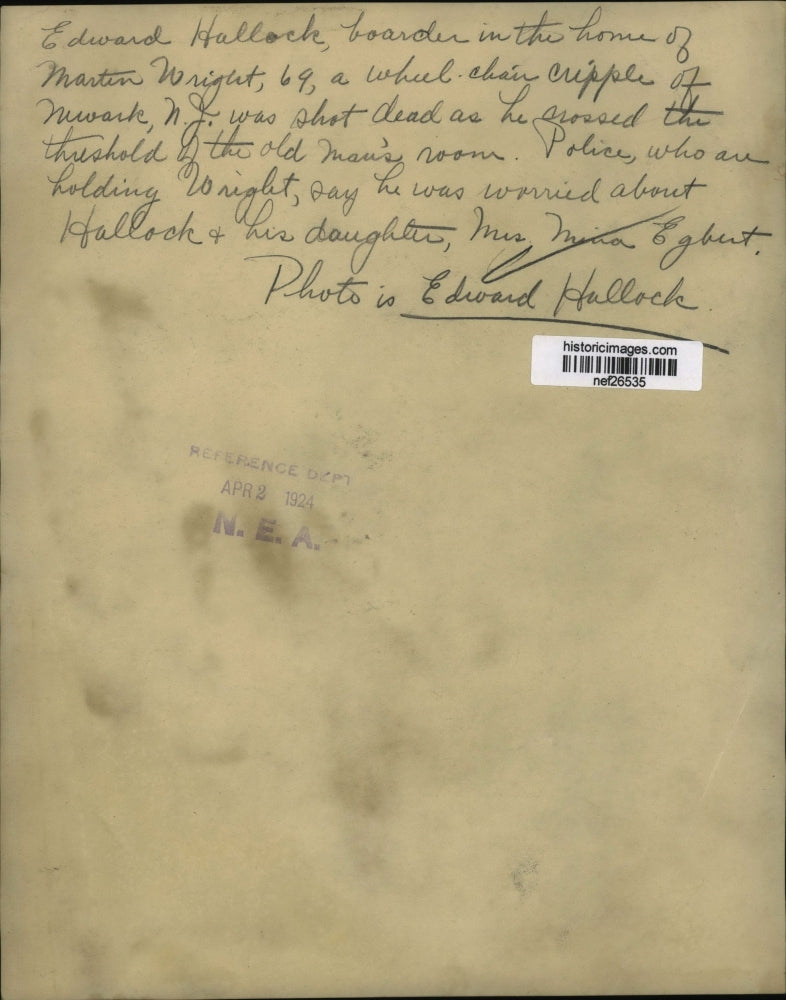 Edward Hallock, boarder in the home of
Martin Wright, 69, a wheel-chair cripple of
Newark, N.J. was shot dead as he crossed the
threshold of the old man's room. Police, who are
holding Wright, say he was worried about
Hallock & his daughter, Mrs. Mina Egbert.
Photo is Edward Hallock.
historicimages.com
nef26535
REFERENCE DEPT
APR 2 1924
N. E. A.